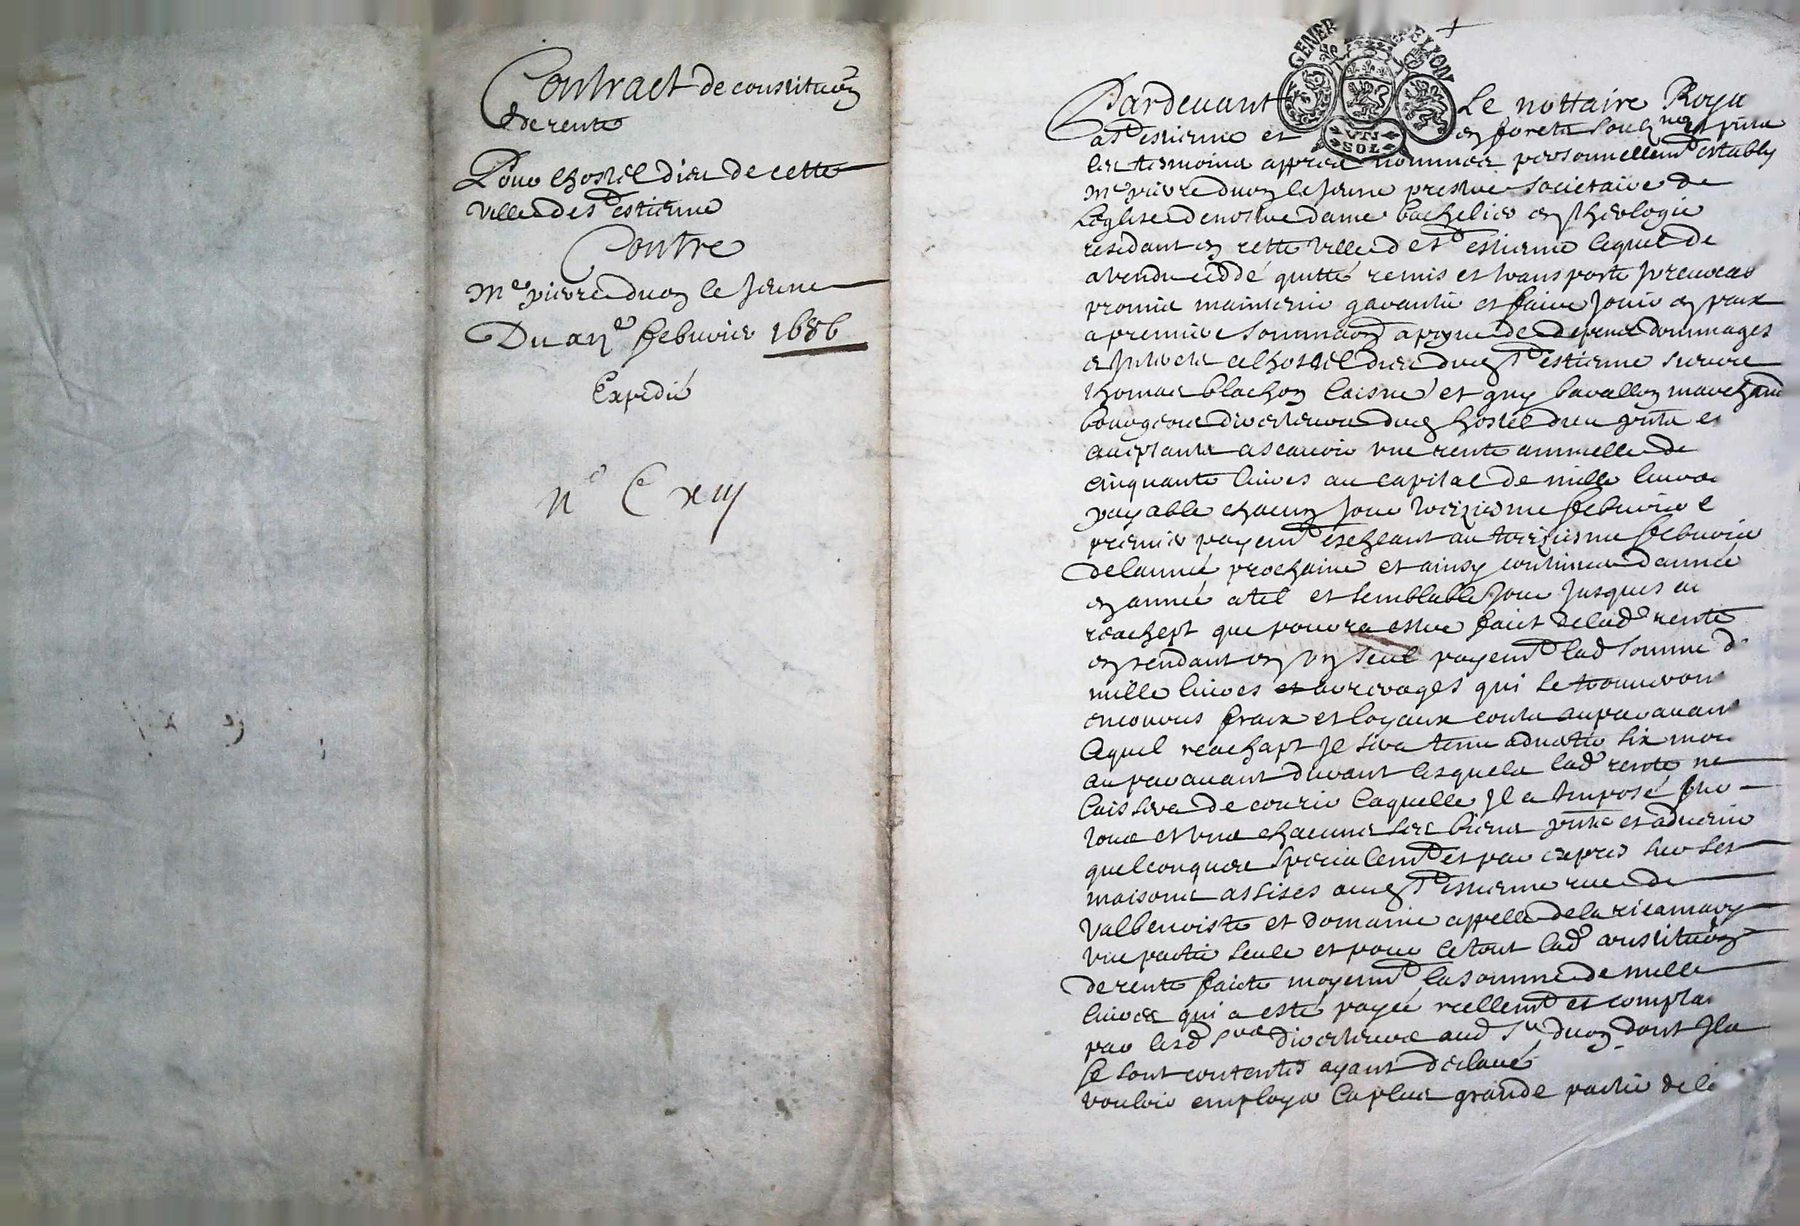 Contract de constituon
de rente
Pour lhostel dieu de cette
ville de St estienne
Contre
Me pierre duon le Jeune
Du febvrier 1686
Expedié
n° C xiij
GENER LYON
UN SOL
Pardevant Le nottaire Roya
a St estienne et en forets soubzne
les tesmoins appres nommes personnellemt estably
Me pierre duon le Jeune prestre societaire de
Leglise de nostre dame bachelier en theologie
residant en cette ville de St estienne lequel de
a vendu ceddé quitté remis et transporté
promis maintenir garantir et faire Jouir en paix
a premiere sommaon a peyne de depens dommages
et Interets a lhostel dieu dud St estienne sieurs
thomas blachon laisné et guy bavallon marchand
bourgeois directeurs dud hostel dieu
acceptants ascavoir une rente annuelle de
cinquante livres au capital de mille livres
payable chacun Jour treiziesme febvrier l
premier payemt escheant au treiziesme febvrier
de lannée prochaine et ainsy continuer dannée
en année a tel et semblable Jour Jusques au
reachept que pourra estre faict de lade rente
en rendant en un seul payemt lad somme d
mille livres et arrerages qui se trouveron
encourus fraix et loyaux couts auparavant
lequel reachapt Il sera tenu advertir six moi
auparavant durant lesquels lade rente ne
laissera de courir laquelle Il a Imposé sur
tous et uns chacuns ses biens pnts et advenir
quelconques specialemt et par expres sur ses
maisons assises aud St estienne rue de
Valbenoiste et domaine appellé de la ricamary
une partie seule et pour le tout lade constituon
de rente faicte moyent la somme de mille
livres qui a esté payée reellemt et compta
par lesd Srs directeurs aud Sr duon dont Ils
se sont contentés ayant declaré
vouloir employer la plus grande partie de l